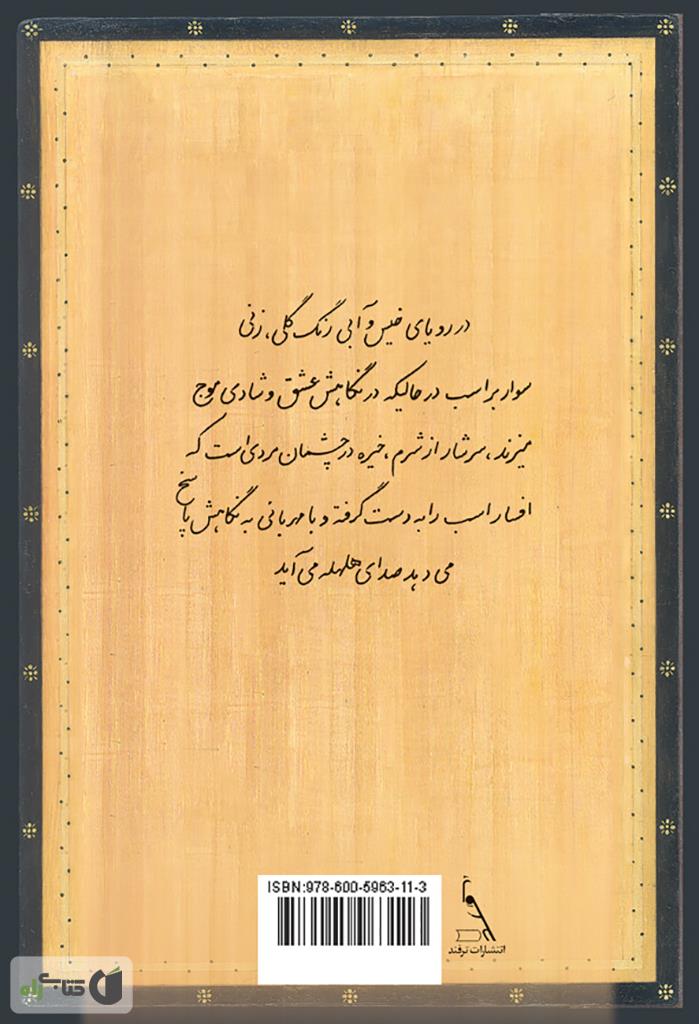 در رویای خیس و آبی رنگ گلی، زنی
سوار بر اسب در حالیکه در نگاهش عشق و شادی موج
میزند، سرشار از شرم، خیره در چشمان مردی است که
افسار اسب را به دست گرفته و با مهربانی به نگاهش پاسخ
می دهد صدای هلهله می آید
ISBN:978-600-5963-11-3
انتشارات ترفند
کتابراه